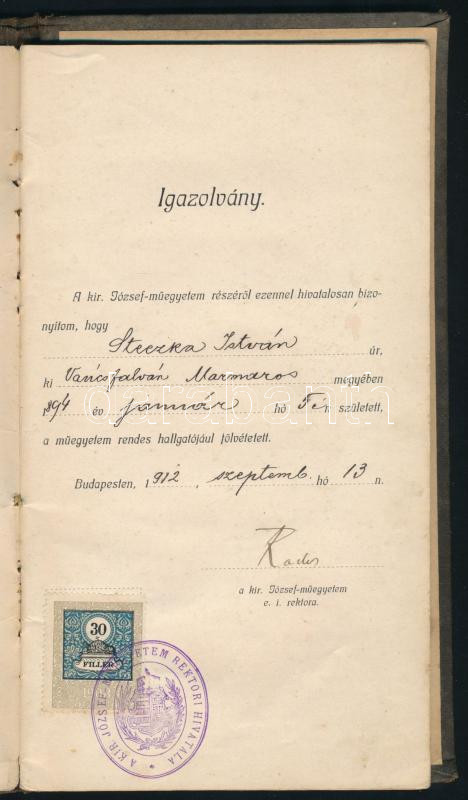 Igazolvány.
A kir. József-műegyetem részéről ezennel hivatalosan bizo-
nyítom, hogy
Steczka István úr,
ki Váncsfalván Marmaros megyében
1894 év január hó 5én született,
a műegyetem rendes hallgatójául fölvétetett.
Budapesten, 1912, szeptemb. hó 13 n.
Rados
a kir. József-műegyetem
e. i. rektora.
30
FILLÉR
A KIR. JÓZSEF-MŰEGYETEM REKTORI HIVATALA
darabanth